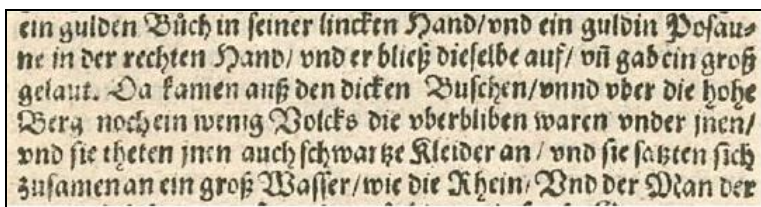 ein gulden Bůch in seiner lincken Hand/vnd ein guldin Posau-
ne in der rechten Hand/ vnd er bließ dieselbe auf/ vñ gab ein groß
gelaut. Da kamen auß den dicken Buschen/vnnd vber die hohe
Berg noch ein wenig Volcks die vberbliben waren vnder jnen/
vnd sie theten jnen auch schwartze Kleider an/ vnd sie satzten sich
zusamen an ein groß Wasser/wie die Rhein/ Vnd der Man der